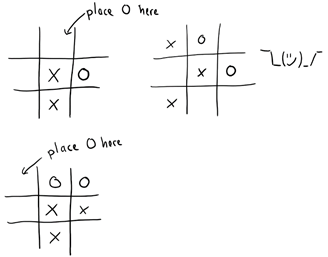 place O here
X O
X
X O
X O
X
¯\_(ツ)_/¯
place O here
O O
X X
X